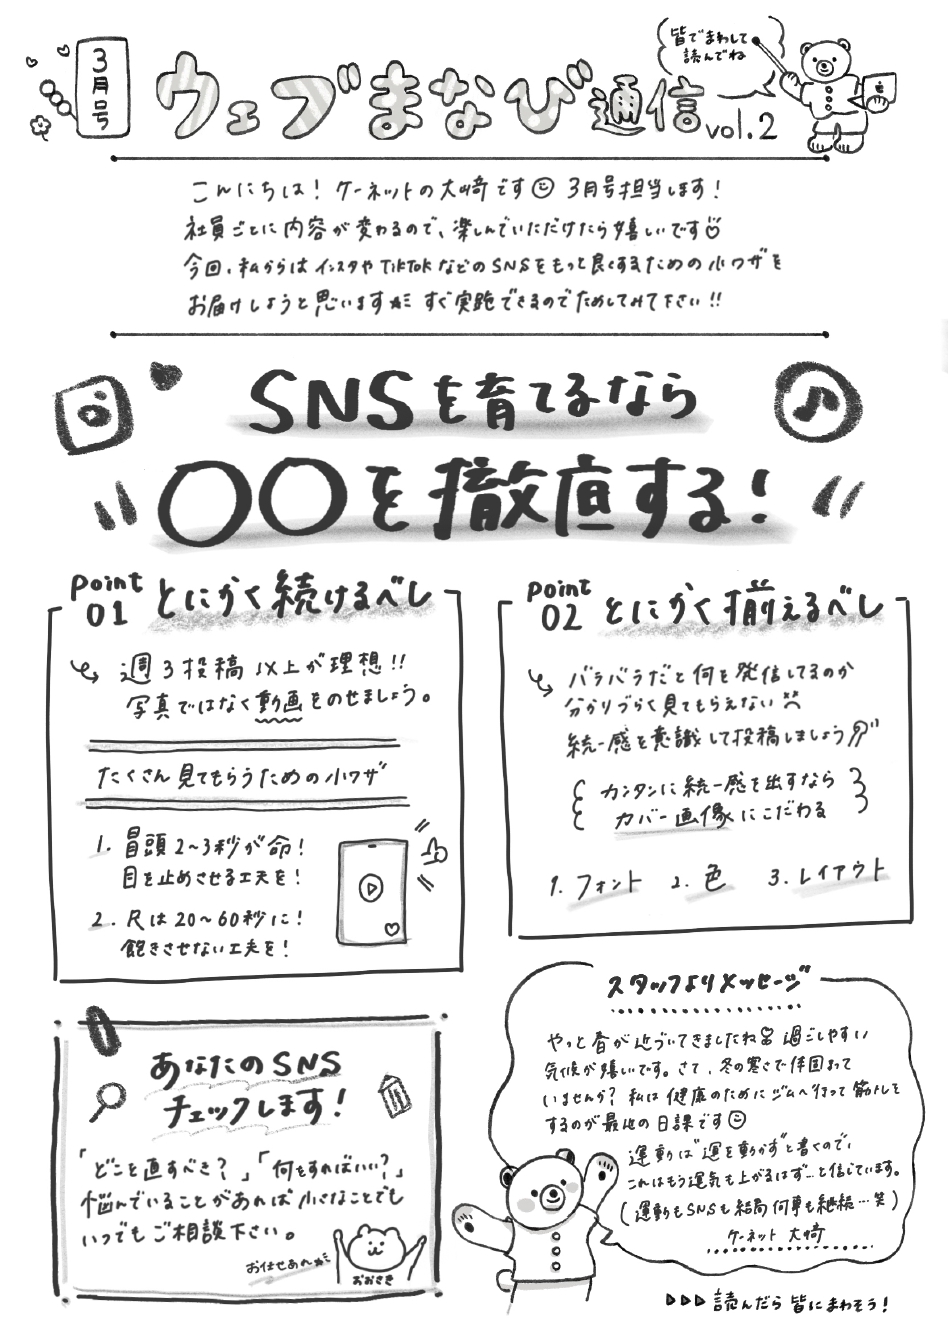 3月号
ウェブまなび通信 vol.2
皆でまわして
読んでね
こんにちは！ ケーネットの大﨑です☺ 3月号担当します！
社員ごとに内容が変わるので、楽しんでいただけたら嬉しいです
今回、私からはインスタやTikTokなどのSNSをもっと良くするための小ワザを
お届けしようと思います すぐ実践できるのでためしてみて下さい!!
SNSを育てるなら
〇〇を徹底する！
Point
01 とにかく続けるべし
週3投稿以上が理想!!
写真ではなく動画をのせましょう。
たくさん見てもらうための小ワザ
1. 冒頭2~3秒が命！
目を止めさせる工夫を！
2. 尺は20~60秒に！
飽きさせない工夫を！
Point
02 とにかく揃えるべし
バラバラだと何を発信してるのか
分かりづらく見てもらえない
統一感を意識して投稿しましょう
カンタンに統一感を出すなら
カバー画像にこだわる
1. フォント 2. 色 3. レイアウト
あなたのSNS
チェックします！
「どこを直すべき？」「何をすればいい？」
悩んでいることがあれば小さなことでも
いつでもご相談下さい。
お任せあれ
おおさき
スタッフよりメッセージ
やっと春が近づいてきましたね 過ごしやすい
気候が嬉いです。さて、冬の寒さで体固まって
いませんか？ 私は健康のためにジムへ行って筋トレを
するのが最近の日課です☺
運動は"運を動かす"と書くので、
これはもう運気も上がるはず…と信じています。
(運動もSNSも結局何事も継続…笑)
ケーネット 大﨑
▷▷▷ 読んだら皆にまわそう！